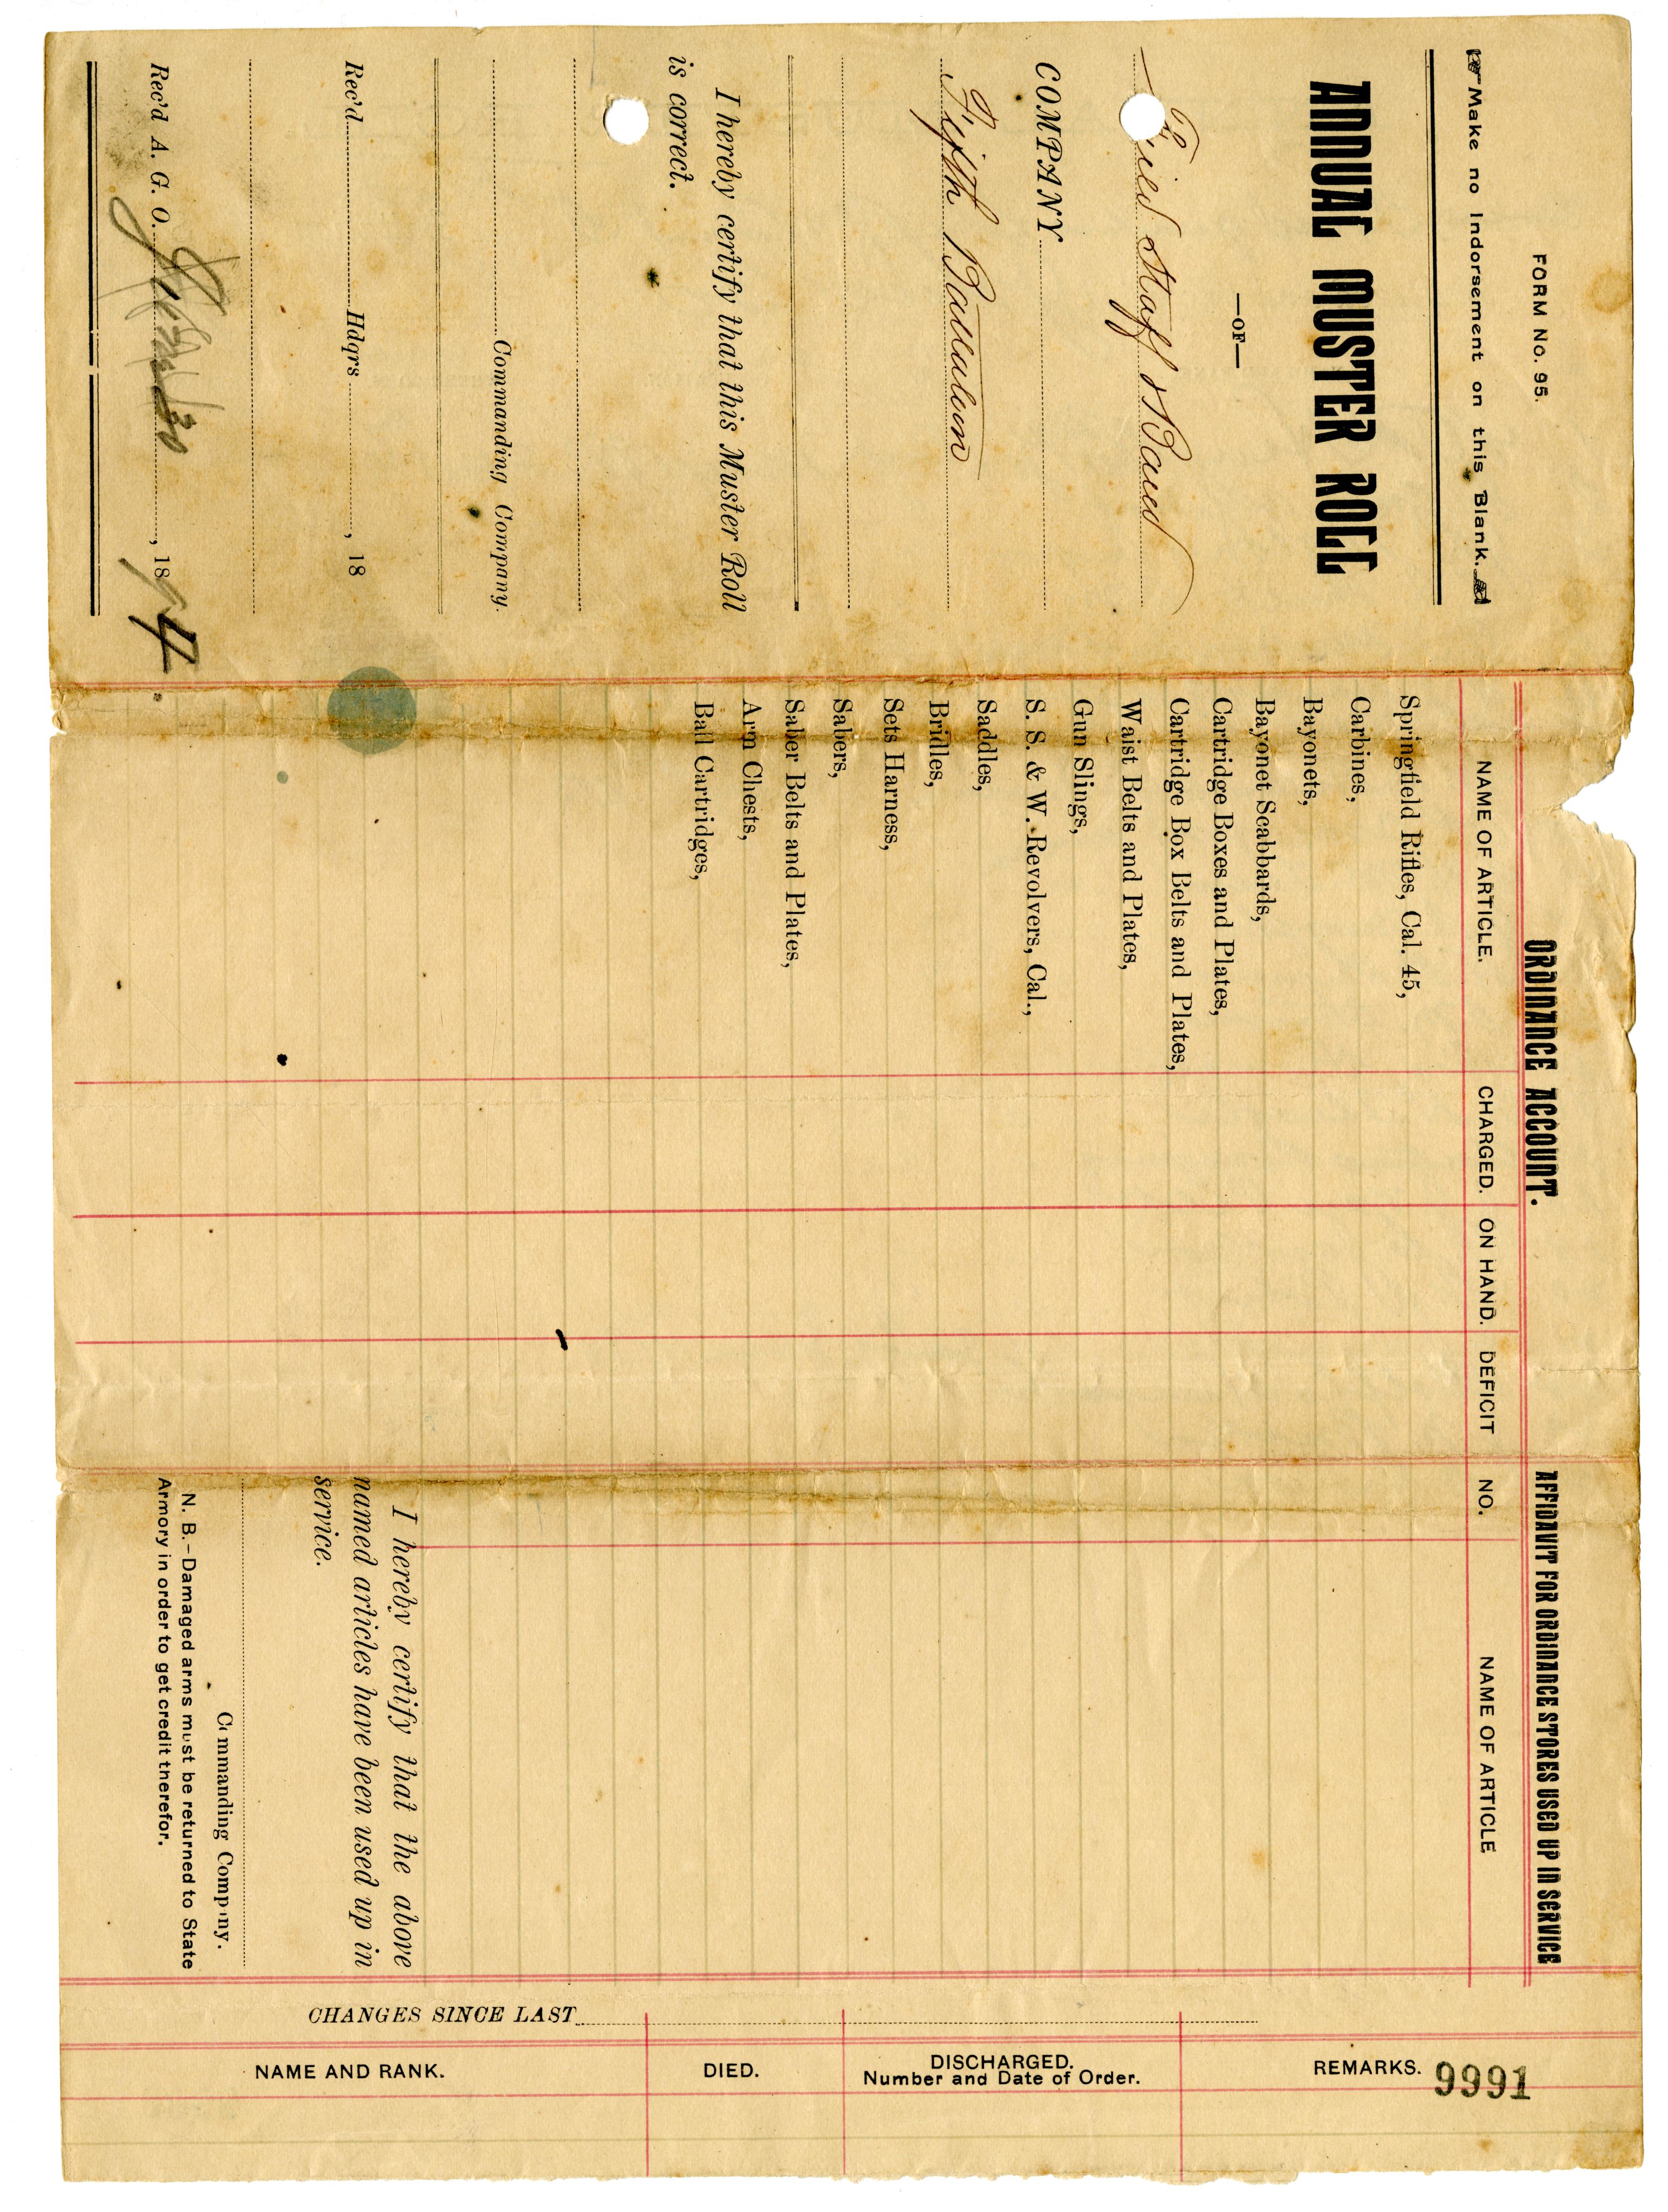 FORM No. 95.
Make no Indorsement on this Blank.
ANNUAL MUSTER ROLL
—OF—
Field Staff & Band
COMPANY
Fifth Battalion
I hereby certify that this Muster Roll
is correct.
Commanding Company.
Rec'd Hdqrs , 18
Rec'd A. G. O. 30 , 1894.
ORDINANCE ACCOUNT.
NAME OF ARTICLE. CHARGED. ON HAND. DEFICIT
Springfield Rifles, Cal. 45,
Carbines,
Bayonets,
Bayonet Scabbards,
Cartridge Boxes and Plates,
Cartridge Box Belts and Plates,
Waist Belts and Plates,
Gun Slings,
S. S. & W. Revolvers, Cal.,
Saddles,
Bridles,
Sets Harness,
Sabers,
Saber Belts and Plates,
Arm Chests,
Ball Cartridges,
AFFIDAVIT FOR ORDINANCE STORES USED UP IN SERVICE
NO. NAME OF ARTICLE
I hereby certify that the above
named articles have been used up in
service.
Commanding Company.
N. B.—Damaged arms must be returned to State
Armory in order to get credit therefor.
CHANGES SINCE LAST
NAME AND RANK. DIED. DISCHARGED. REMARKS.
Number and Date of Order.
9991